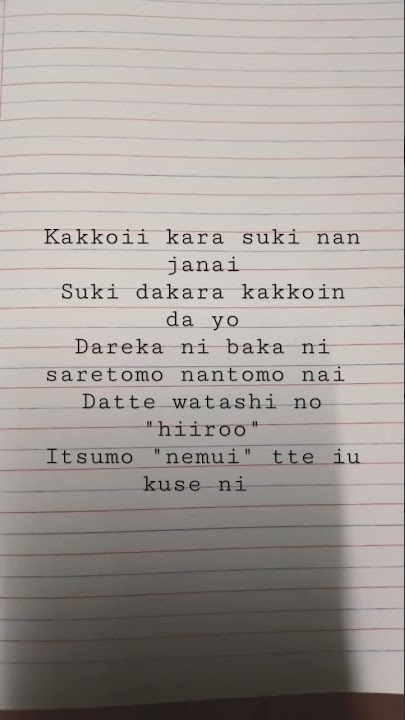 Kakkoii kara suki nan
janai
Suki dakara kakkoin
da yo
Dareka ni baka ni
saretomo nantomo nai
Datte watashi no
"hiiroo"
Itsumo "nemui" tte iu
kuse ni